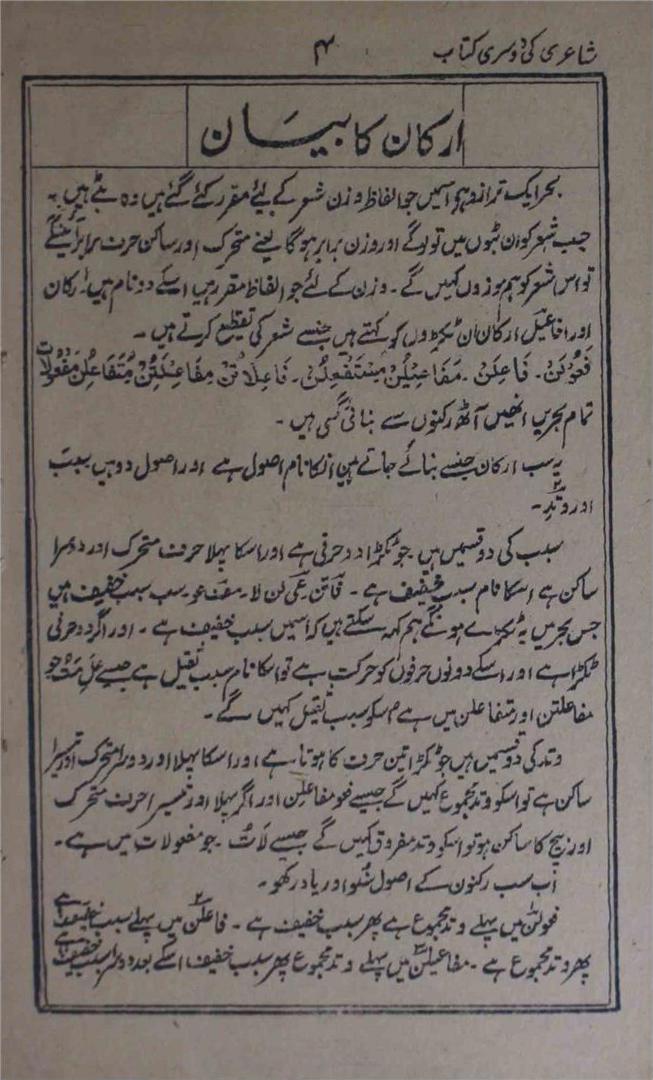 شاعری کی دوسری کتاب
۴
ارکان کا بیان
بحر ایک ترازو ہے اسمیں جو الفاظ وزن شعر کے لیئے مقرر کئے گئے ہیں وہ بٹے ہیں۔
جب شعر کو ان بٹوں میں تولوگے اور وزن برابر ہوگا یعنے متحرک اور ساکن حرف برابر آئینگے
تو اس شعر کو ہم موزوں کہیں گے۔ وزن کے لئے جو الفاظ مقرر ہیں اسکے دو نام ہیں ارکان
اور افاعیل ارکان ان ٹکڑوں کو کہتے ہیں جنسے شعر کی تقطیع کرتے ہیں۔
فَعُوْلُنْ۔ فَاعِلُنْ۔ مَفَاعِیْلُنْ مُسْتَفْعِلُنْ۔ فَاعِلَاتُنْ مُفَاعِلَتُنْ مُتَفَاعِلُنْ مَفْعُوْلَاتُ
تمام بحریں انھیں آٹھ رکنوں سے بنائی گئی ہیں۔
یہ سب ارکان جنسے بنائے جاتے ہیں انکا نام اصول ہے اور اصول دو ہیں سبب
اور وتد۔
سبب کی دو قسمیں ہیں جو ٹکڑا دو حرفی ہے اور اسکا پہلا حرف متحرک اور دوسرا
ساکن ہے اسکا نام سبب خفیف ہے۔ فا تن عی لن لا۔ مف عو۔ سب سبب خفیف ہیں
جس بحر میں یہ ٹکڑے ہونگے ہم کہہ سکتے ہیں کہ اسمیں سبب خفیف ہے۔ اور اگر دو حرفی
ٹکڑا ہے اور اسکے دونوں حرفوں کو حرکت ہے تو اسکا نام سبب ثقیل ہے جیسے عَلَ مُتَ جو
مفاعلتن اور متفاعلن میں ہے ہم اسکو سبب ثقیل کہیں گے۔
وتد کی دو قسمیں ہیں جو ٹکڑا تین حرف کا ہوتا ہے اور اسکا پہلا اور دوسرا متحرک اور تیسرا
ساکن ہے تو اسکو وتد مجموع کہیں گے جیسے فعو مفا علن اور اگر پہلا اور تیسرا حرف متحرک
اور بیچ کا ساکن ہو تو اسکو وتد مفروق کہیں گے جیسے لَاتُ۔ جو مفعولات میں ہے۔
اب سب رکنوں کے اصول سُنو اور یاد رکھو۔
فعولن میں پہلے وتد مجموع ہے پھر سبب خفیف ہے۔ فاعلن میں پہلے سبب خفیف ہے
پھر وتد مجموع ہے۔ مفاعیلن میں پہلے وتد مجموع پھر سبب خفیف اسکے بعد دوسرا سبب خفیف ہے